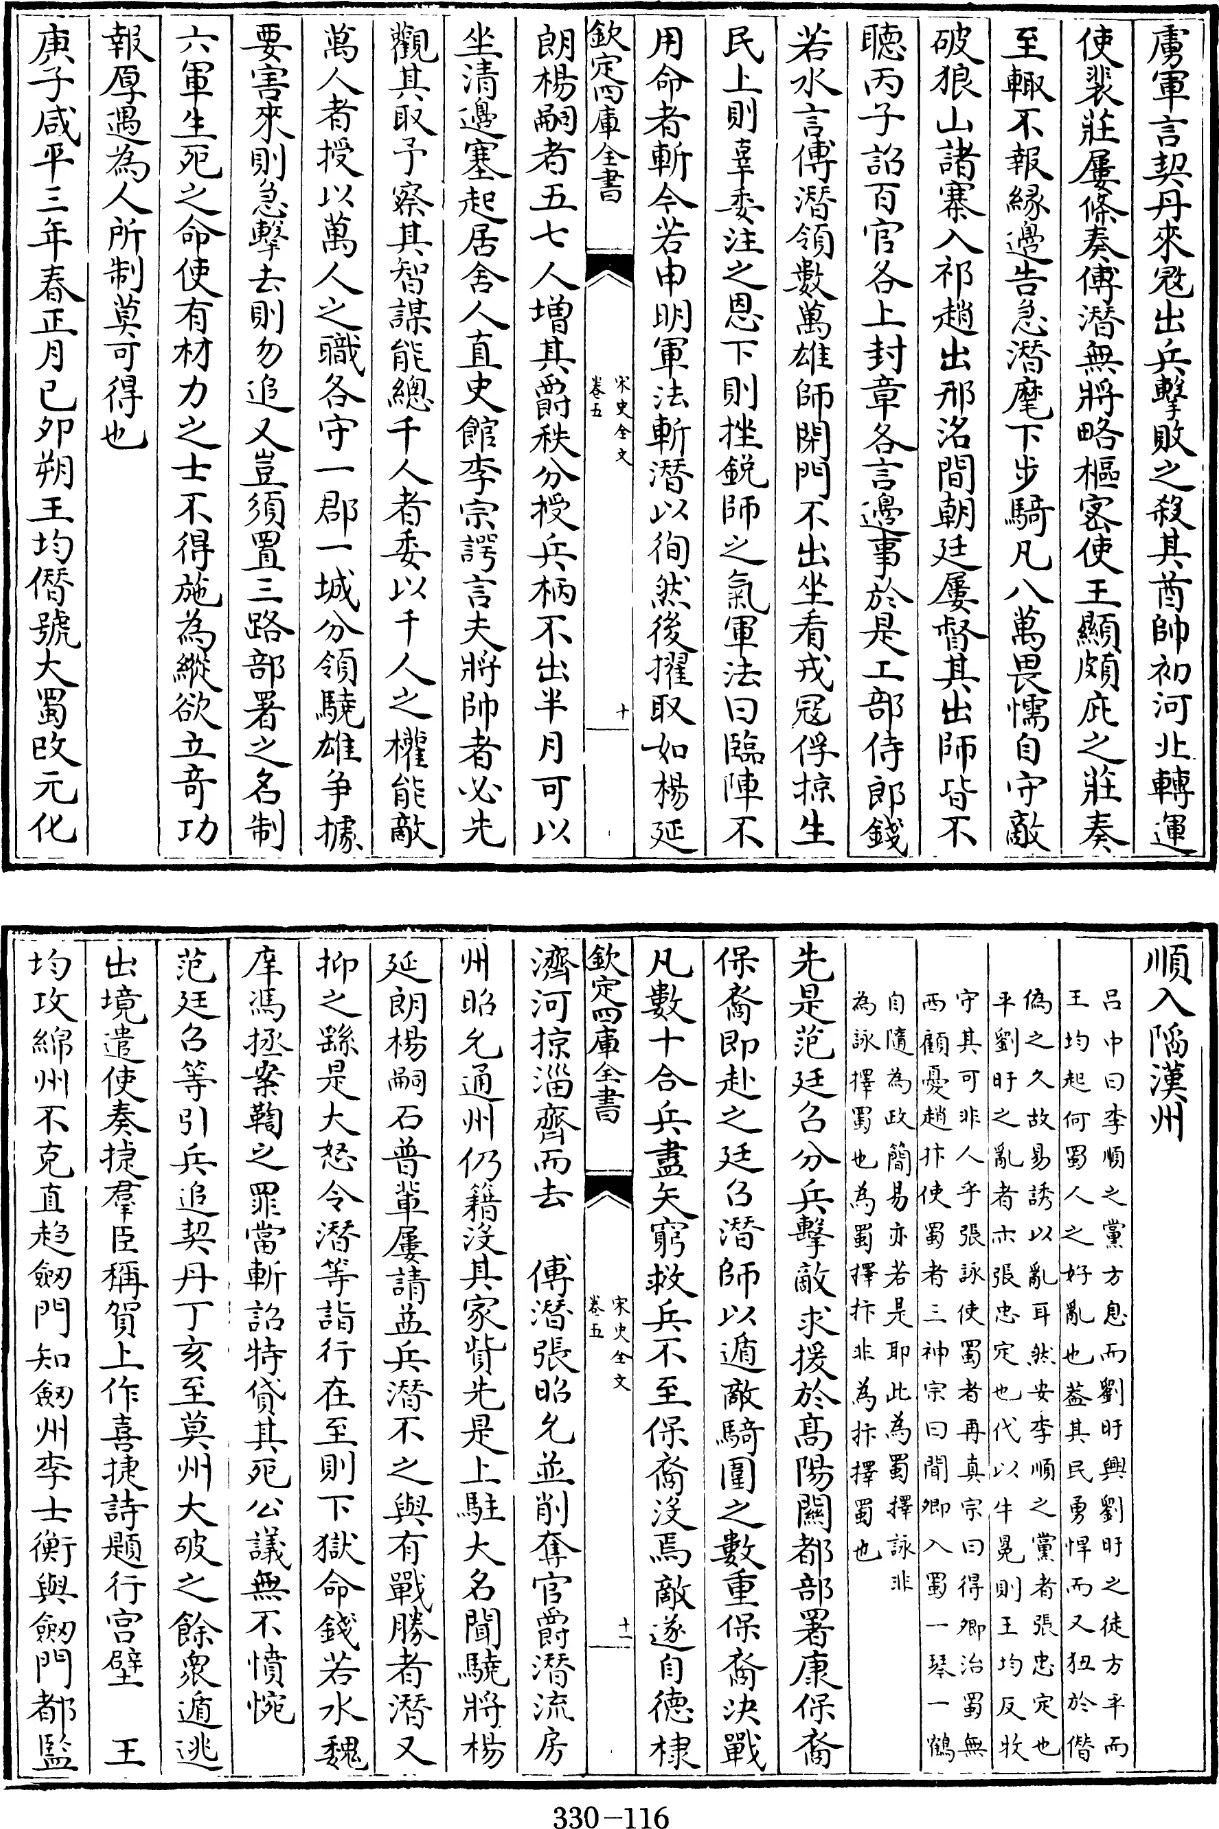 虜軍言契丹來冦出兵擊敗之殺其酋帥初河北轉運
使裴莊屢條奏傅潛無將略樞宻使王顯頗庇之莊奏
至輙不報縁邊告急潛麾下步騎凡八萬畏懦自守敵
破狼山諸寨入祁趙出邢洺間朝廷屢督其出師皆不
聽丙子詔百官各上封章各言邊事於是工部侍郎錢
若水言傅潛領數萬雄師閉門不出坐看戎冦俘掠生
民上則辜委注之恩下則挫銳師之氣軍法曰臨陣不
用命者斬今若申明軍法斬潛以徇然後擢取如楊延
欽定四庫全書
宋史全文
卷五
十
朗楊嗣者五七人增其爵秩分授兵柄不出半月可以
坐清邊塞起居舍人直史館李宗諤言夫將帥者必先
觀其取予察其智謀能總千人者委以千人之權能敵
萬人者授以萬人之職各守一郡一城分領驍雄争據
要害來則急擊去則勿追又豈須置三路部署之名制
六軍生死之命使有材力之士不得施為縱欲立奇功
報厚遇為人所制莫可得也
庚子咸平三年春正月己夘朔王均僭號大蜀改元化
順入陷漢州
吕中曰李順之黨方息而劉旴興劉旴之徒方平而
王均起何蜀人之好亂也葢其民勇悍而又狃於僭
偽之久故易誘以亂耳然安李順之黨者張忠定也
平劉旴之亂者亦張忠定也代以牛冕則王均反牧
守其可非人乎張詠使蜀者再真宗曰得卿治蜀無
西顧憂趙抃使蜀者三神宗曰聞卿入蜀一琴一鶴
自隨為政簡易亦若是耶此為蜀擇詠非
為詠擇蜀也為蜀擇抃非為抃擇蜀也
先是范廷召分兵擊敵求援於髙陽關都部署康保裔
保裔即赴之廷召潛師以遁敵騎圍之數重保裔決戰
凡數十合兵盡矢窮救兵不至保裔沒焉敵遂自德棣
欽定四庫全書
宋史全文
卷五
十一
濟河掠淄齊而去　傅潛張昭允並削奪官爵潛流房
州昭允通州仍籍沒其家貲先是上駐大名聞驍將楊
延朗楊嗣石普軰屢請益兵潛不之與有戰勝者潛又
抑之繇是大怒令潛等詣行在至則下獄命錢若水魏
庠馮拯案鞫之罪當斬詔特貸其死公議無不憤惋
范廷召等引兵追契丹丁亥至莫州大破之餘衆遁逃
出境遣使奏捷羣臣稱賀上作喜捷詩題行宫壁　王
均攻綿州不克直趋劒門知劒州李士衡與劒門都監
330-116